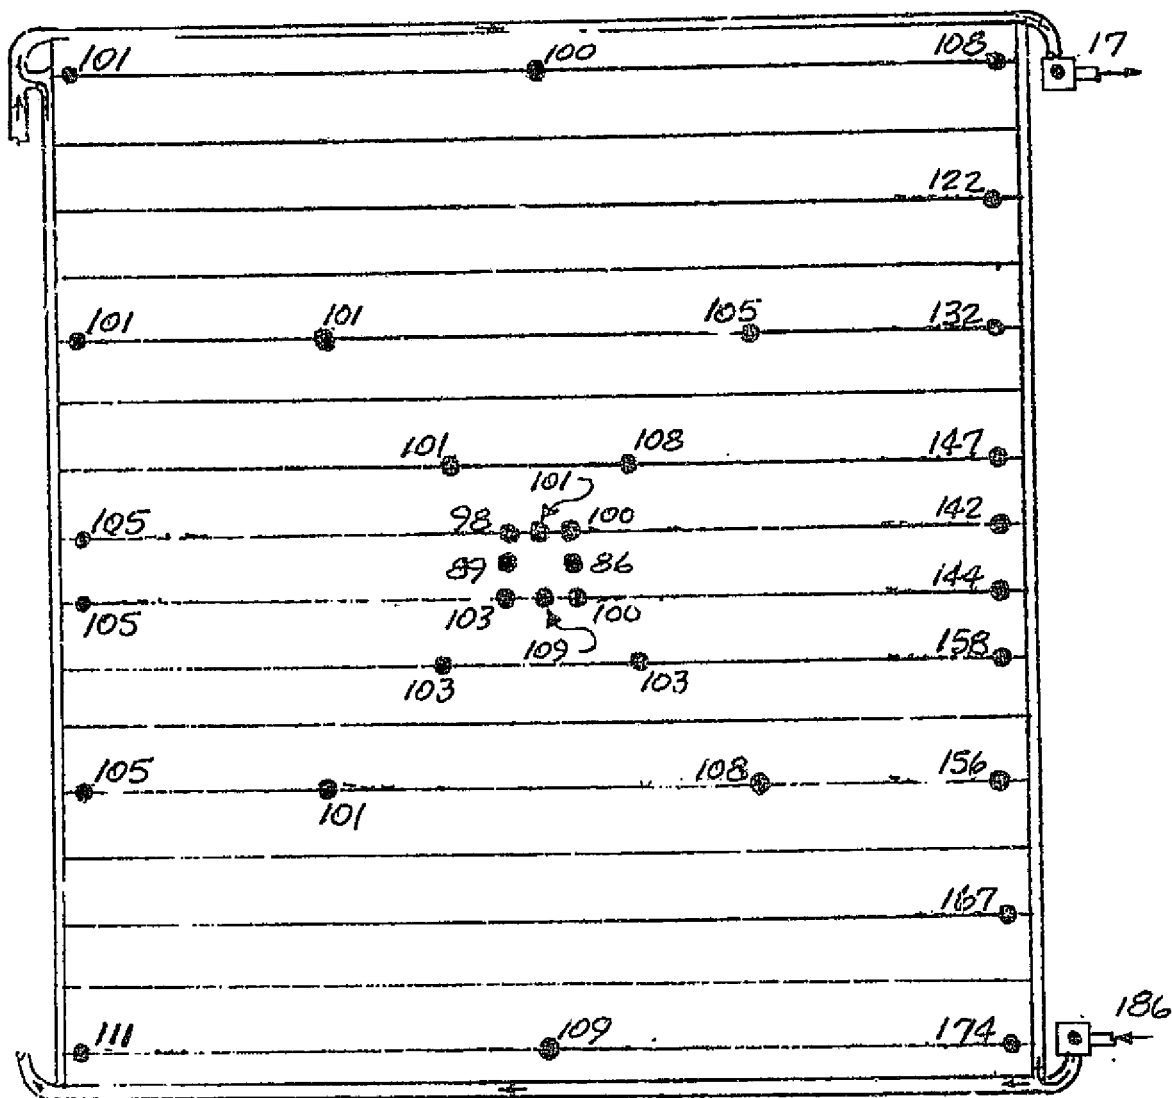 101 100 108 17
122
101 101 105 132
101 108 147
101
105 98 100 142
89 86
144
105 103 100
109
158
103 103
105 108 156
101
167
186
111 109 174